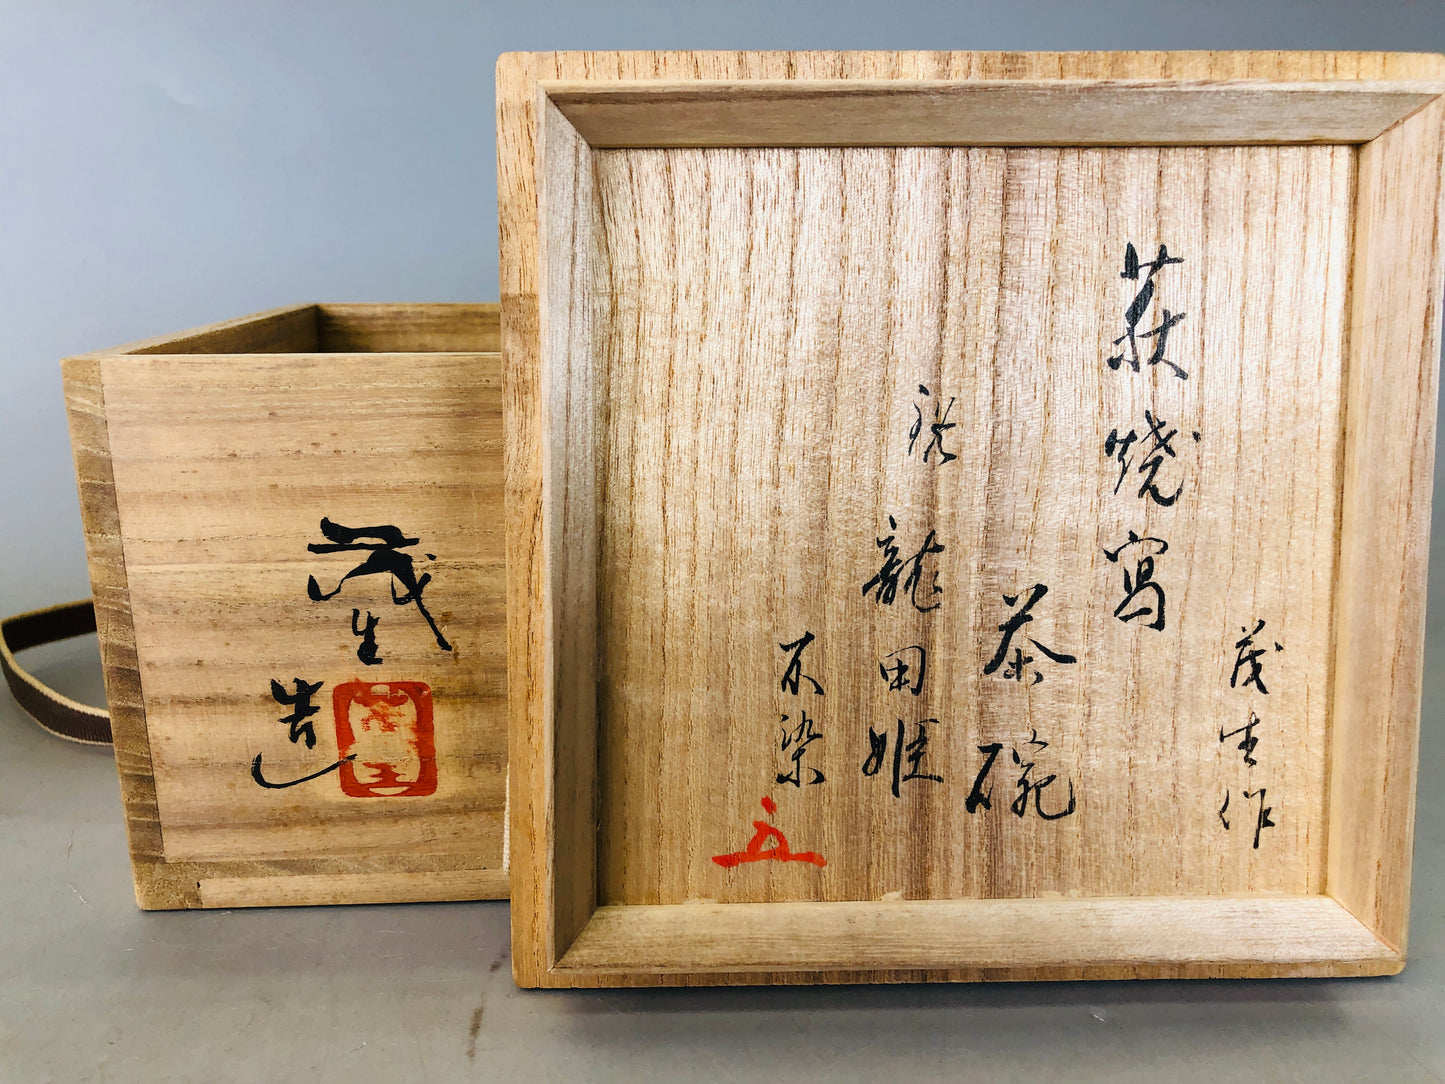 茂生作
萩焼寫
茶碗
銘
龍田姫
不染
茂生
造